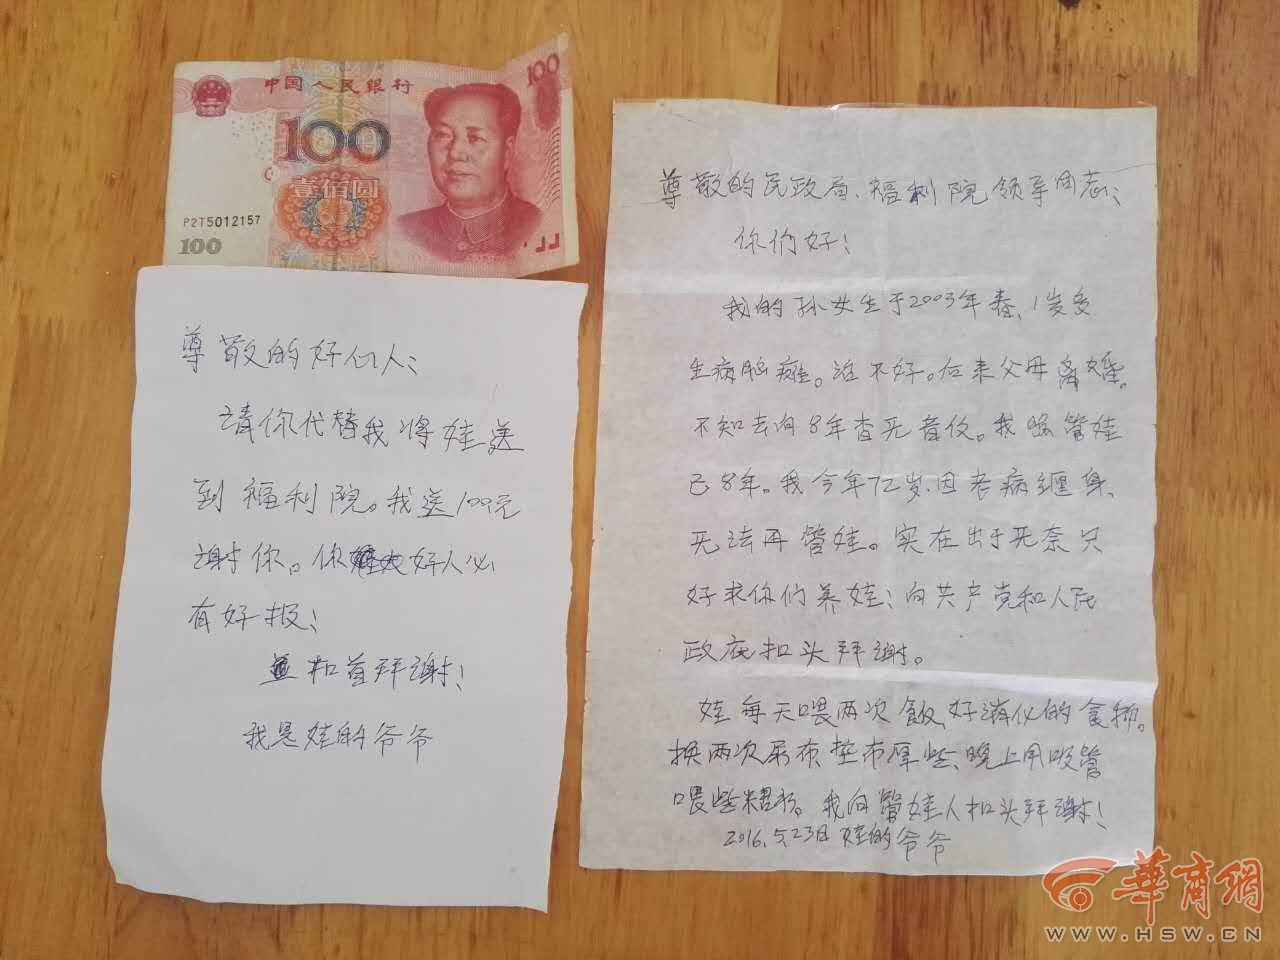 中国人民银行
100
100
壹佰圆
P2T5012157
100
尊敬的好心人:
请你代替我将娃送
到福利院。我送100元
谢你。你好人必
有好报!
扣首拜谢!
我是娃的爷爷
尊敬的民政局、福利院领导同志:
你们好!
我的孙女生于2003年春、1岁多
生病脑瘫。治不好。后来父母离婚。
不知去向8年杳无音信。我喂管娃
已8年。我今年72岁、因老病缠身、
无法再管娃。实在出于无奈只
好求你们养娃;向共产党和人民
政府扣头拜谢。
娃每天喂两次飯、好消化的食物。
换两次尿布、垫布厚些、晚上用吸管
喂些糊汤。我向管娃人扣头拜谢!
2016.5.23日 娃的爷爷
華商網
WWW.HSW.CN